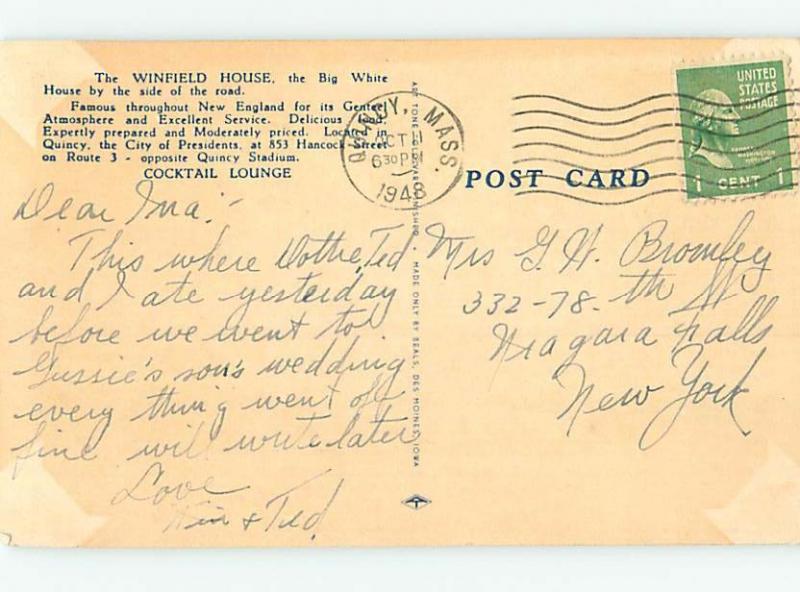 The WINFIELD HOUSE, the Big White
House by the side of the road.
Famous throughout New England for its Genteel
Atmosphere and Excellent Service. Delicious Food.
Expertly prepared and Moderately priced. Located in
Quincy, the City of Presidents, at 853 Hancock Street
on Route 3 - opposite Quincy Stadium.
COCKTAIL LOUNGE
Dear Ina:-
This where Dottie, Ted
and I ate yesterday
before we went to
Gussie's son's wedding
every thing went off
fine will write later
Love
& Ted
MADE ONLY BY BEALS, DES MOINES, IOWA
QUINCY, MASS.
OCT
630 PM
1948
POST CARD
UNITED
STATES
POSTAGE
WASHINGTON
1 CENT 1
Mrs G. H. Bromley
332-78-th St
Niagara Falls
New York